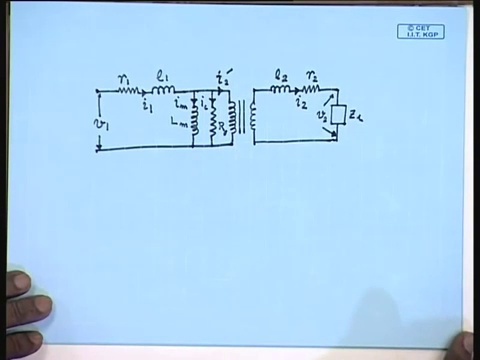 © CET
I.I.T. KGP
r1 l1 i2' l2 r2
i1 im ic i2
v1 Lm v2 ZL